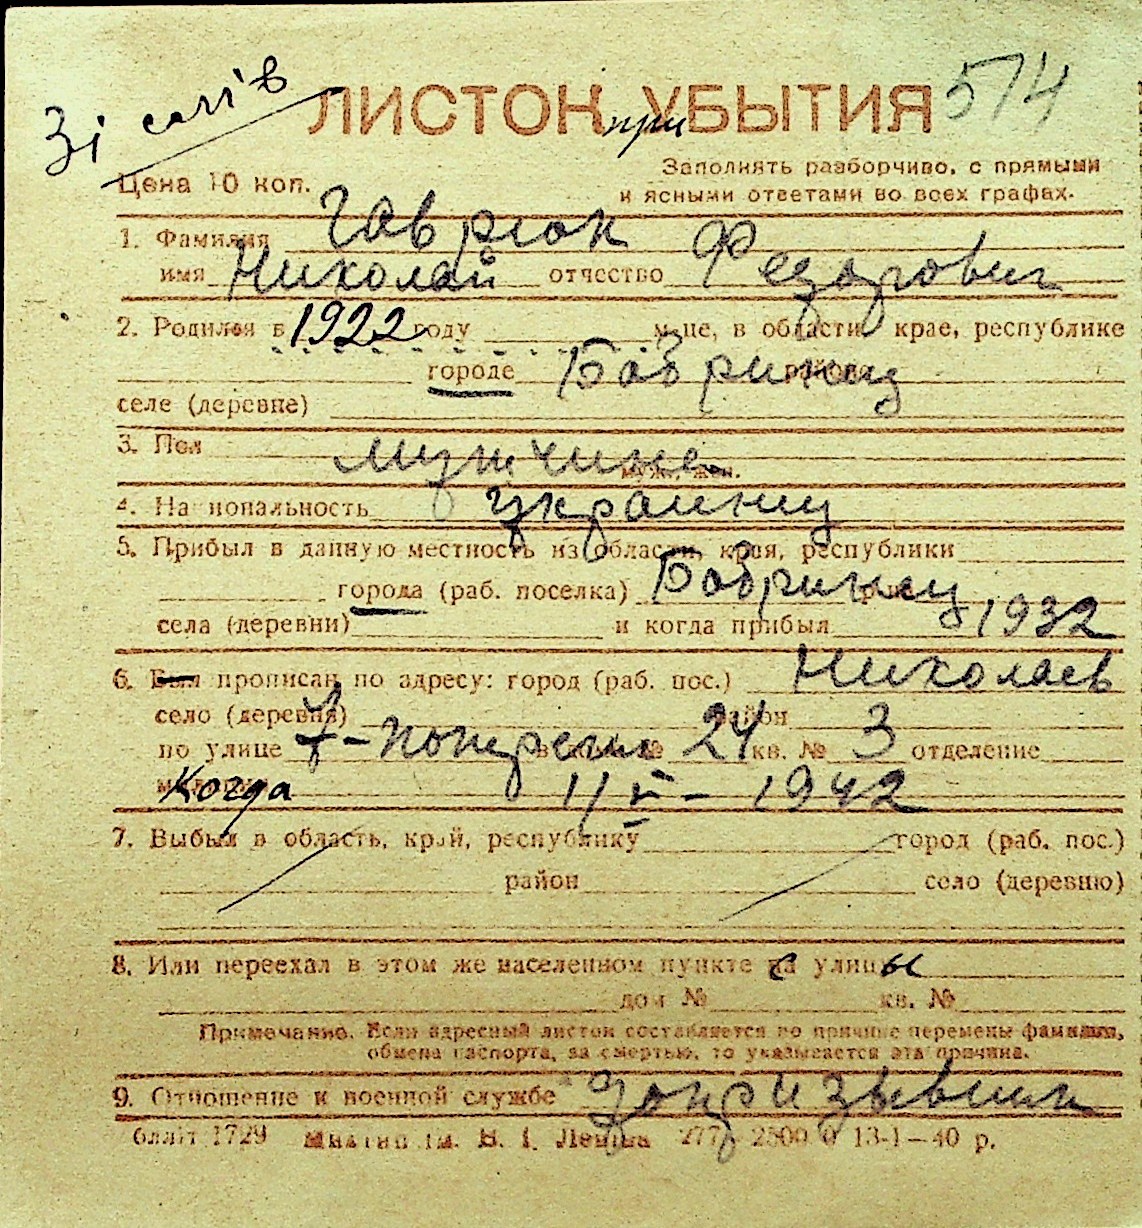 Зі слів
ЛИСТОК при УБЫТИЯ 574
Цена 10 коп.
Заполнять разборчиво, с прямыми
и ясными ответами во всех графах.
1. Фамилия Гаврюк
имя Николай отчество Федорович
2. Родился в 1922 году м-це, в области, крае, республике
городе Бобринец района
селе (деревне)
3. Пол мужчина
муж., жен.
4. Национальность украинец
5. Прибыл в данную местность из области, края, республики
города (раб. поселка) Бобринец
села (деревни) и когда прибыл 1932
6. Был прописан по адресу: город (раб. пос.) Николаев
село (деревня) район
по улице 7-поперечн 24 кв. № 3 отделение
Когда 11/V - 1942
7. Выбыл в область, край, республику город (раб. пос.)
район село (деревню)
8. Или переехал в этом же населенном пункте с улицы
дом № кв. №
Примечание. Если адресный листок составляется по причине перемены фамилии,
обмена паспорта, за смертью, то указывается эта причина.
9. Отношение к военной службе допризывник
1729 им. В. И. Ленина 277 2500 0 13-I—40 р.